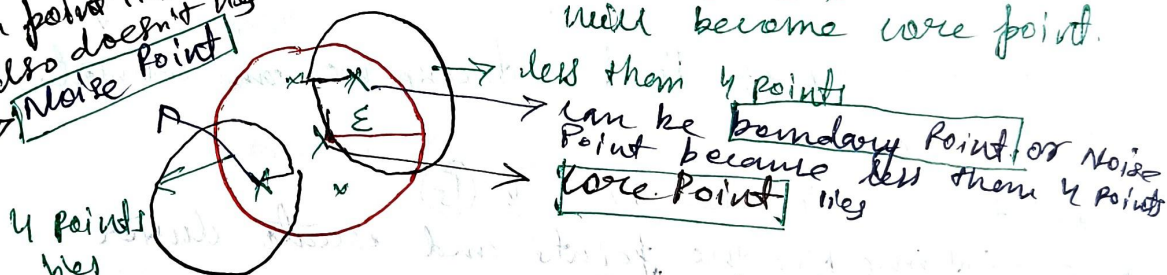 point
also doesn't lies
Noise Point
will become core point.
less them 4 points
can be boundary Point or Noise
Point because less them 4 points
lies
Core Point
ε
4 points
lies